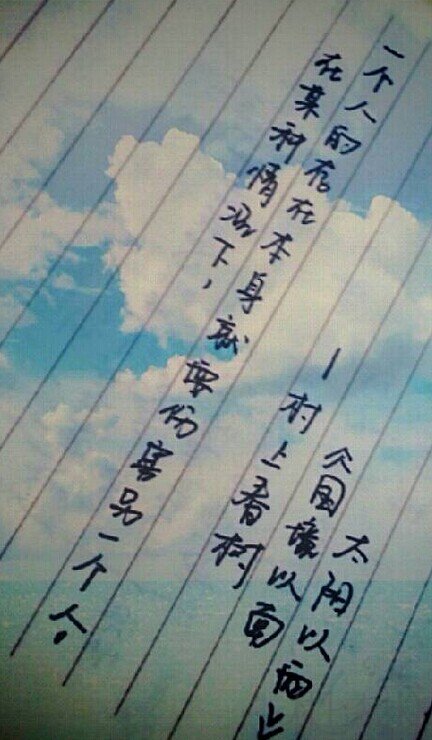 在某种情况下，
一个人的存在本身就要伤害另一个人。
—村上春树
《国境以南
太阳以西》